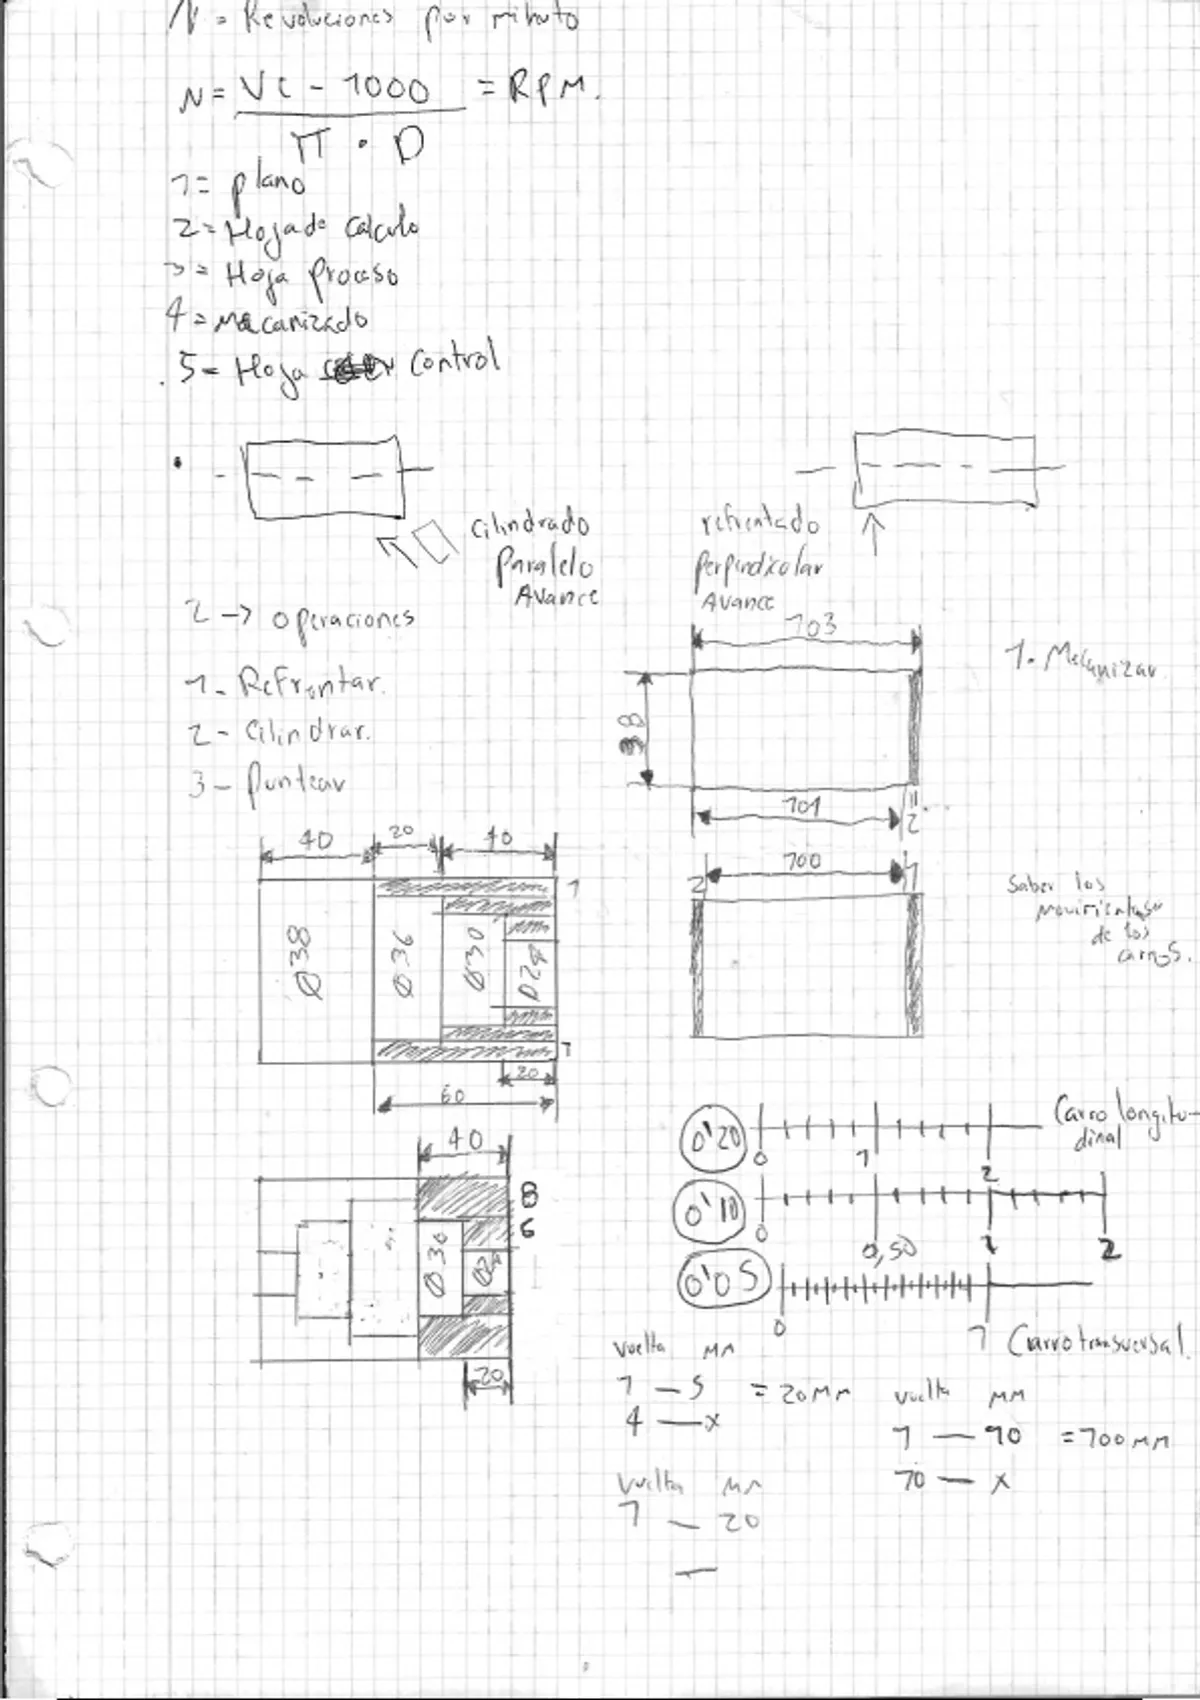 N = Revoluciones por minuto
N = Vc - 1000 = RPM.
π · D
1= plano
2= Hoja de calculo
3= Hoja proceso
4= Mecanizado
5= Hoja control
cilindrado
Paralelo
Avance
refrentado
perpendicolar
Avance
2 -> operaciones
1- Refrontar.
2- Cilindrar.
3- Puntear
103
1. Mecanizar
38
101
2
40
20
40
1
Ø38
Ø36
Ø30
Ø24
1
20
60
2
100
1
Saber los
movimientos
de los
carros.
40
8
6
Ø30
Ø24
20
0'20
0
1
2
Carro longitu-
dinal
0'10
0
0,50
1
2
0'05
0
1
Carro transversal.
vuelta MM
1 — 5 = 20 MM
4 — x
vuelta MM
1 — 10 = 100 MM
10 — x
Vuelta MM
1 — 20
—